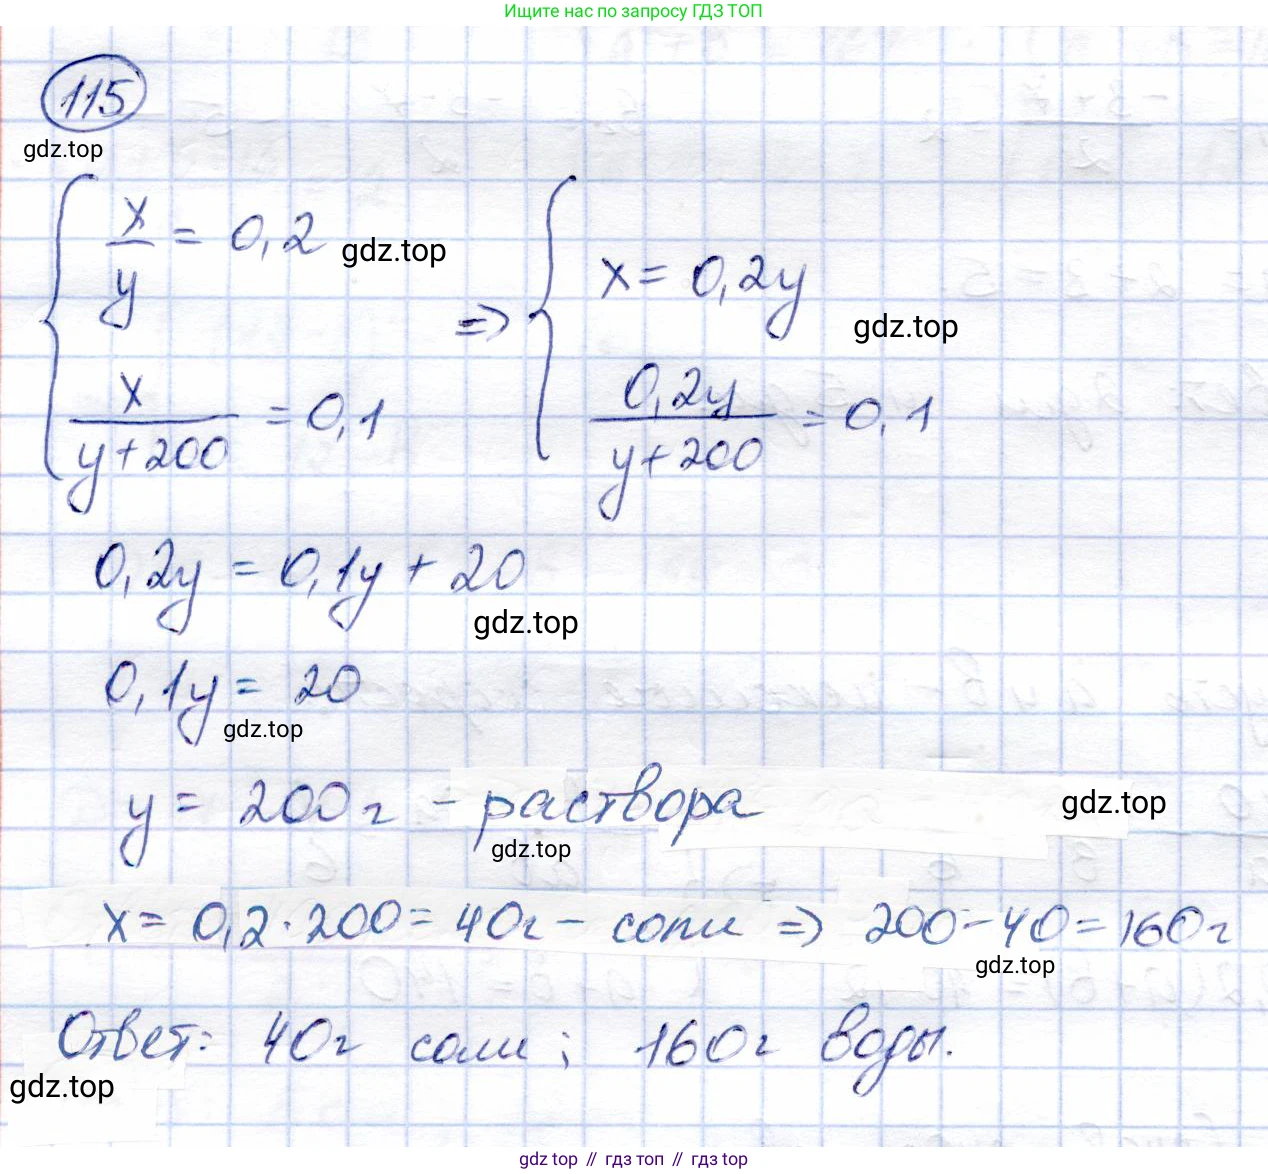 Ищите нас по запросу ГДЗ ТОП
115
gdz.top
x/y = 0,2
gdz.top
x/(y+200) = 0,1
=>
x = 0,2y
gdz.top
0,2y/(y+200) = 0,1
0,2y = 0,1y + 20
gdz.top
0,1y = 20
gdz.top
y = 200г - раствора
gdz.top
gdz.top
x = 0,2·200 = 40г - соли => 200-40=160г
gdz.top
Ответ: 40г соли; 160г воды.
gdz.top
gdz top // гдз топ // gdz top